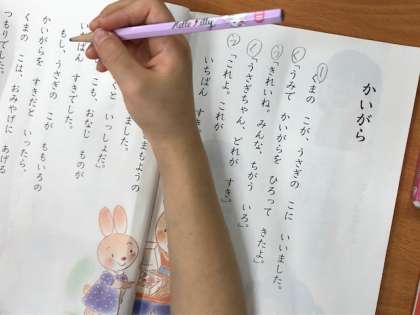 かいがら
①
くまの こが、うさぎの こに いいました。
く「うみで かいがらを ひろって きたよ。」
う「きれいね。みんな、ちがう いろ。」
く「うさぎちゃん、どれが すき。」
う「これよ。これが
いちばん すき。」
まもようの
ました。
くと いっしょだ。」
こも、おなじ ものが
ばん すきでした。
もし、うさぎの こが ももいろの
かいがらを すきだと いったら、
くまの こは、おみやげに あげる
つもりでした。
Kate Kitty